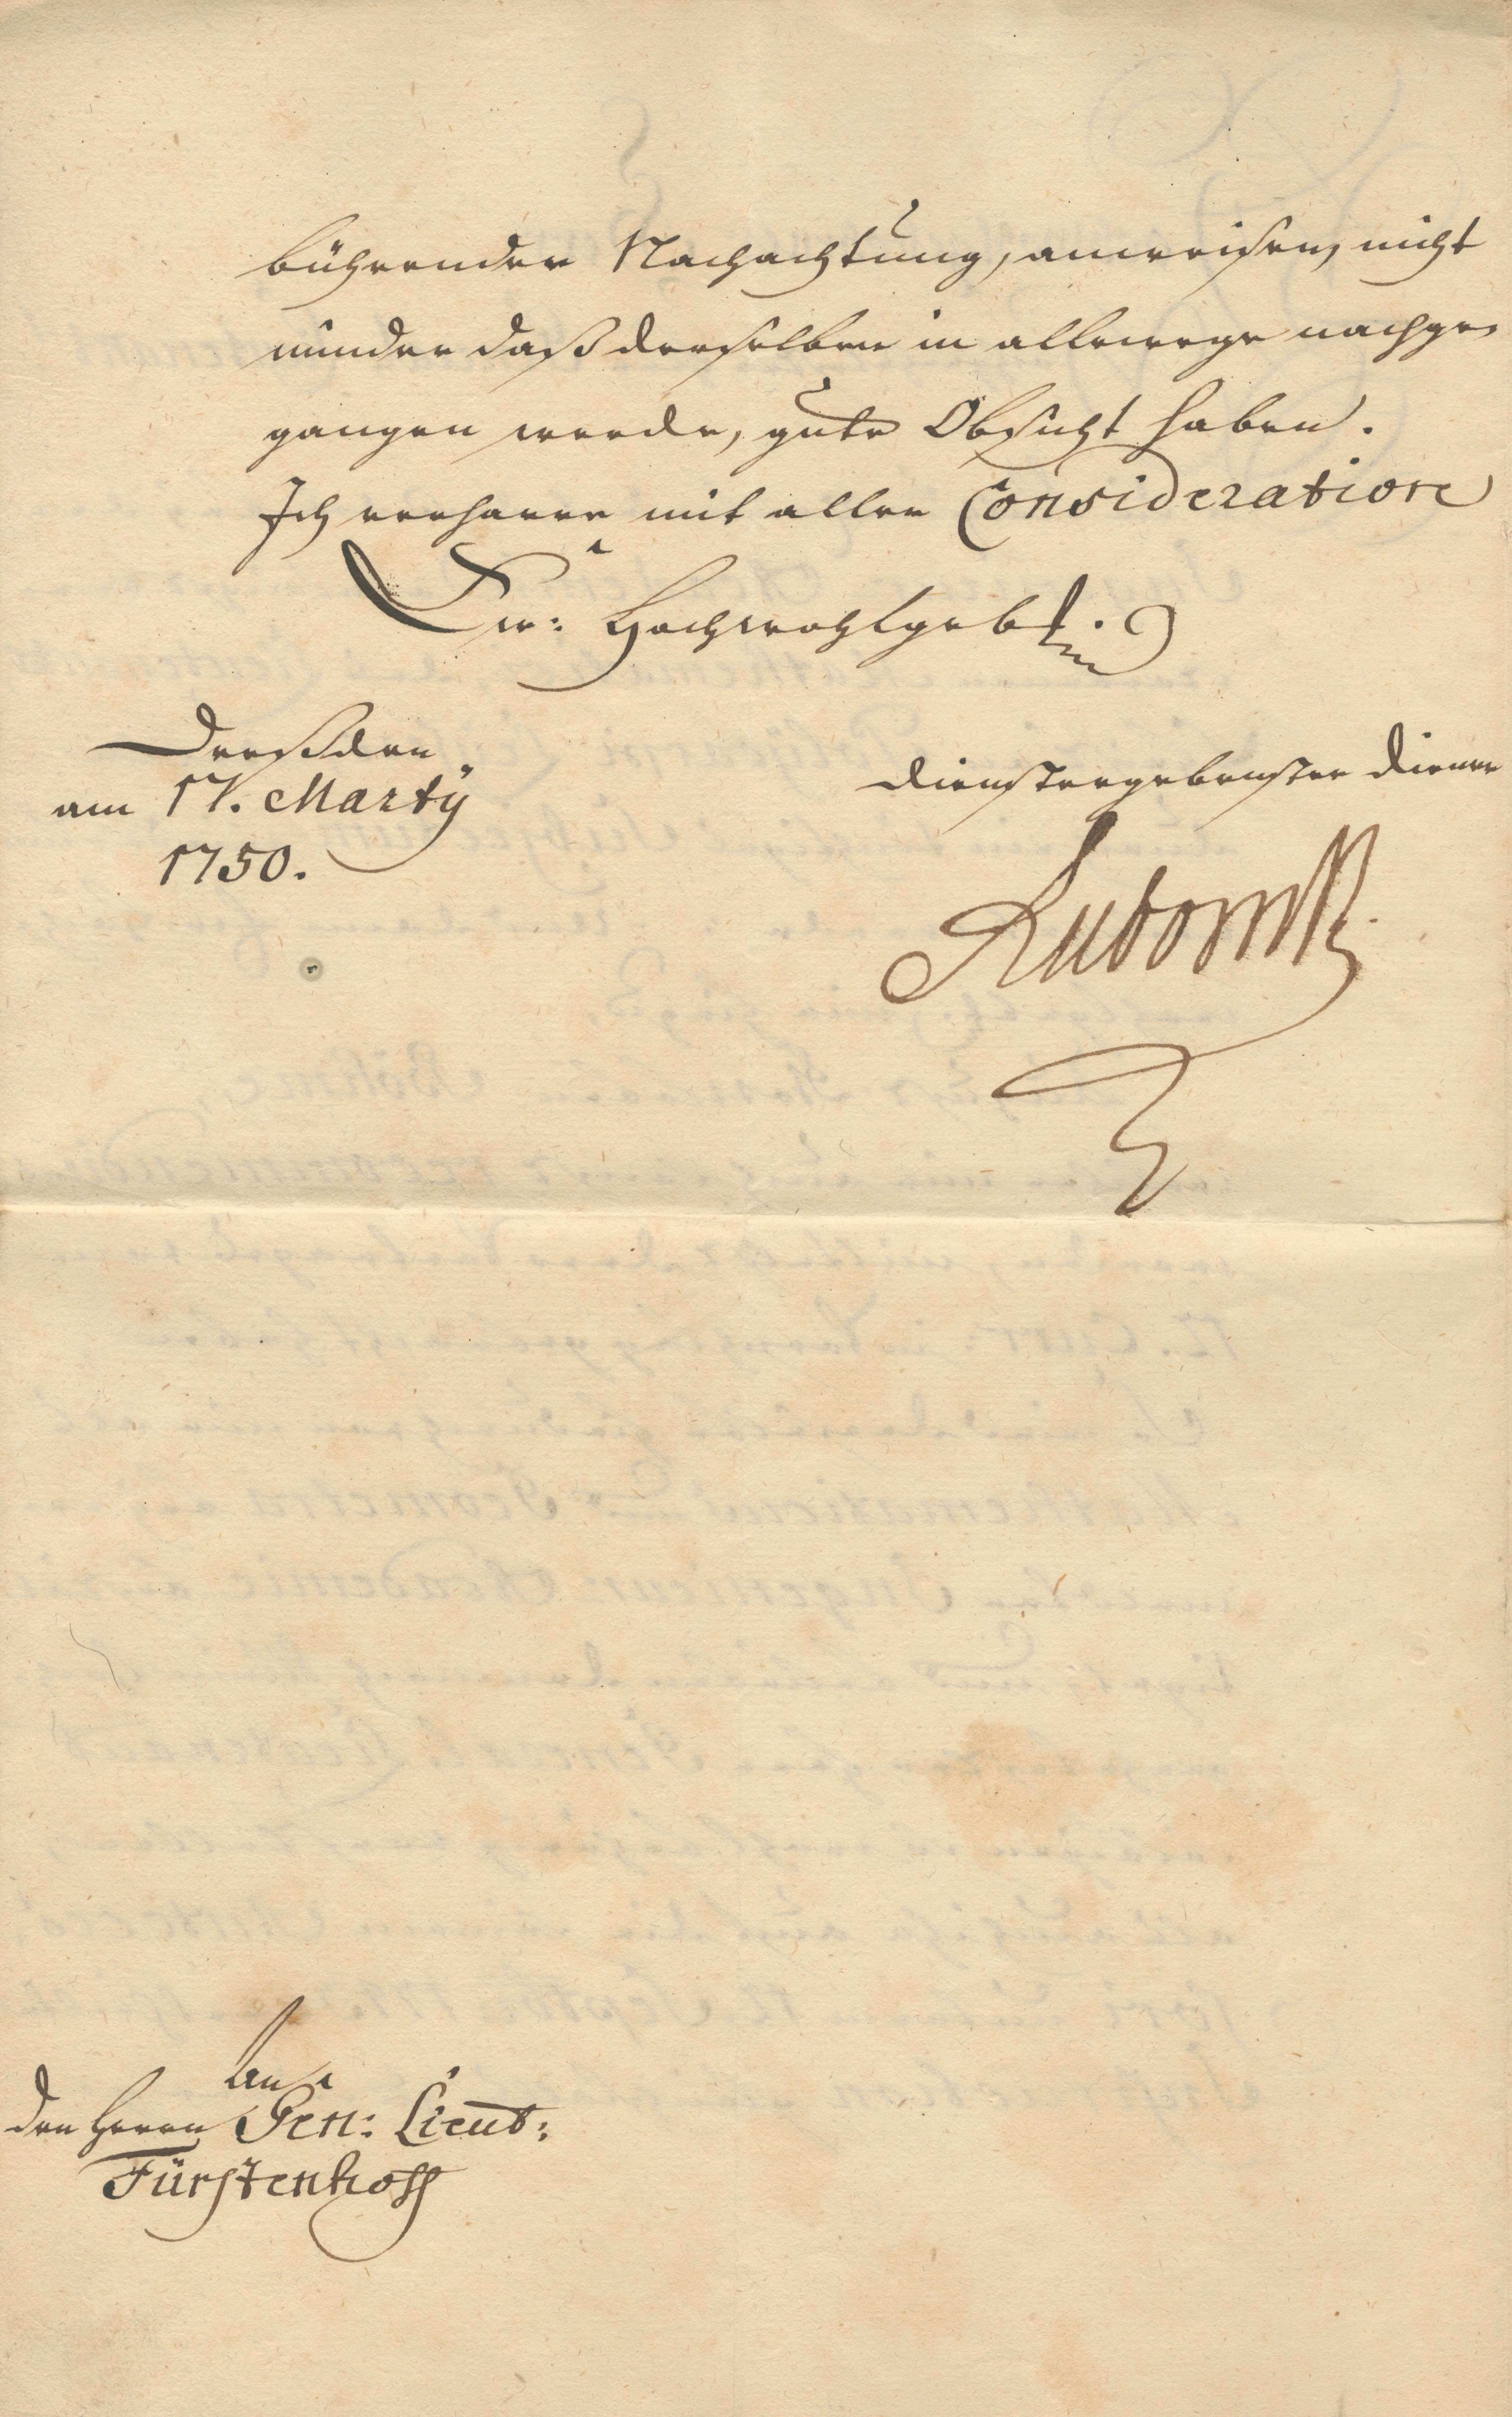 bührender Nachachtung, anweisen, nicht
minder daß derselben in allewege nachge-
gangen werde, gute Obsicht haben.
Ich verharre mit aller Consideration
Ew: Hochwohlgeb.
Dreßden
am 17. Martÿ
1750.
dienstergebenster Diener
An
den Herrn Gen: Lieut:
Fürstenhoff